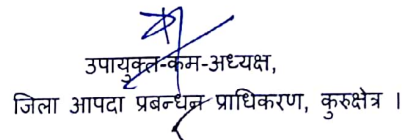 उपायुक्त-कम-अध्यक्ष,
जिला आपदा प्रबन्धन प्राधिकरण, कुरुक्षेत्र ।